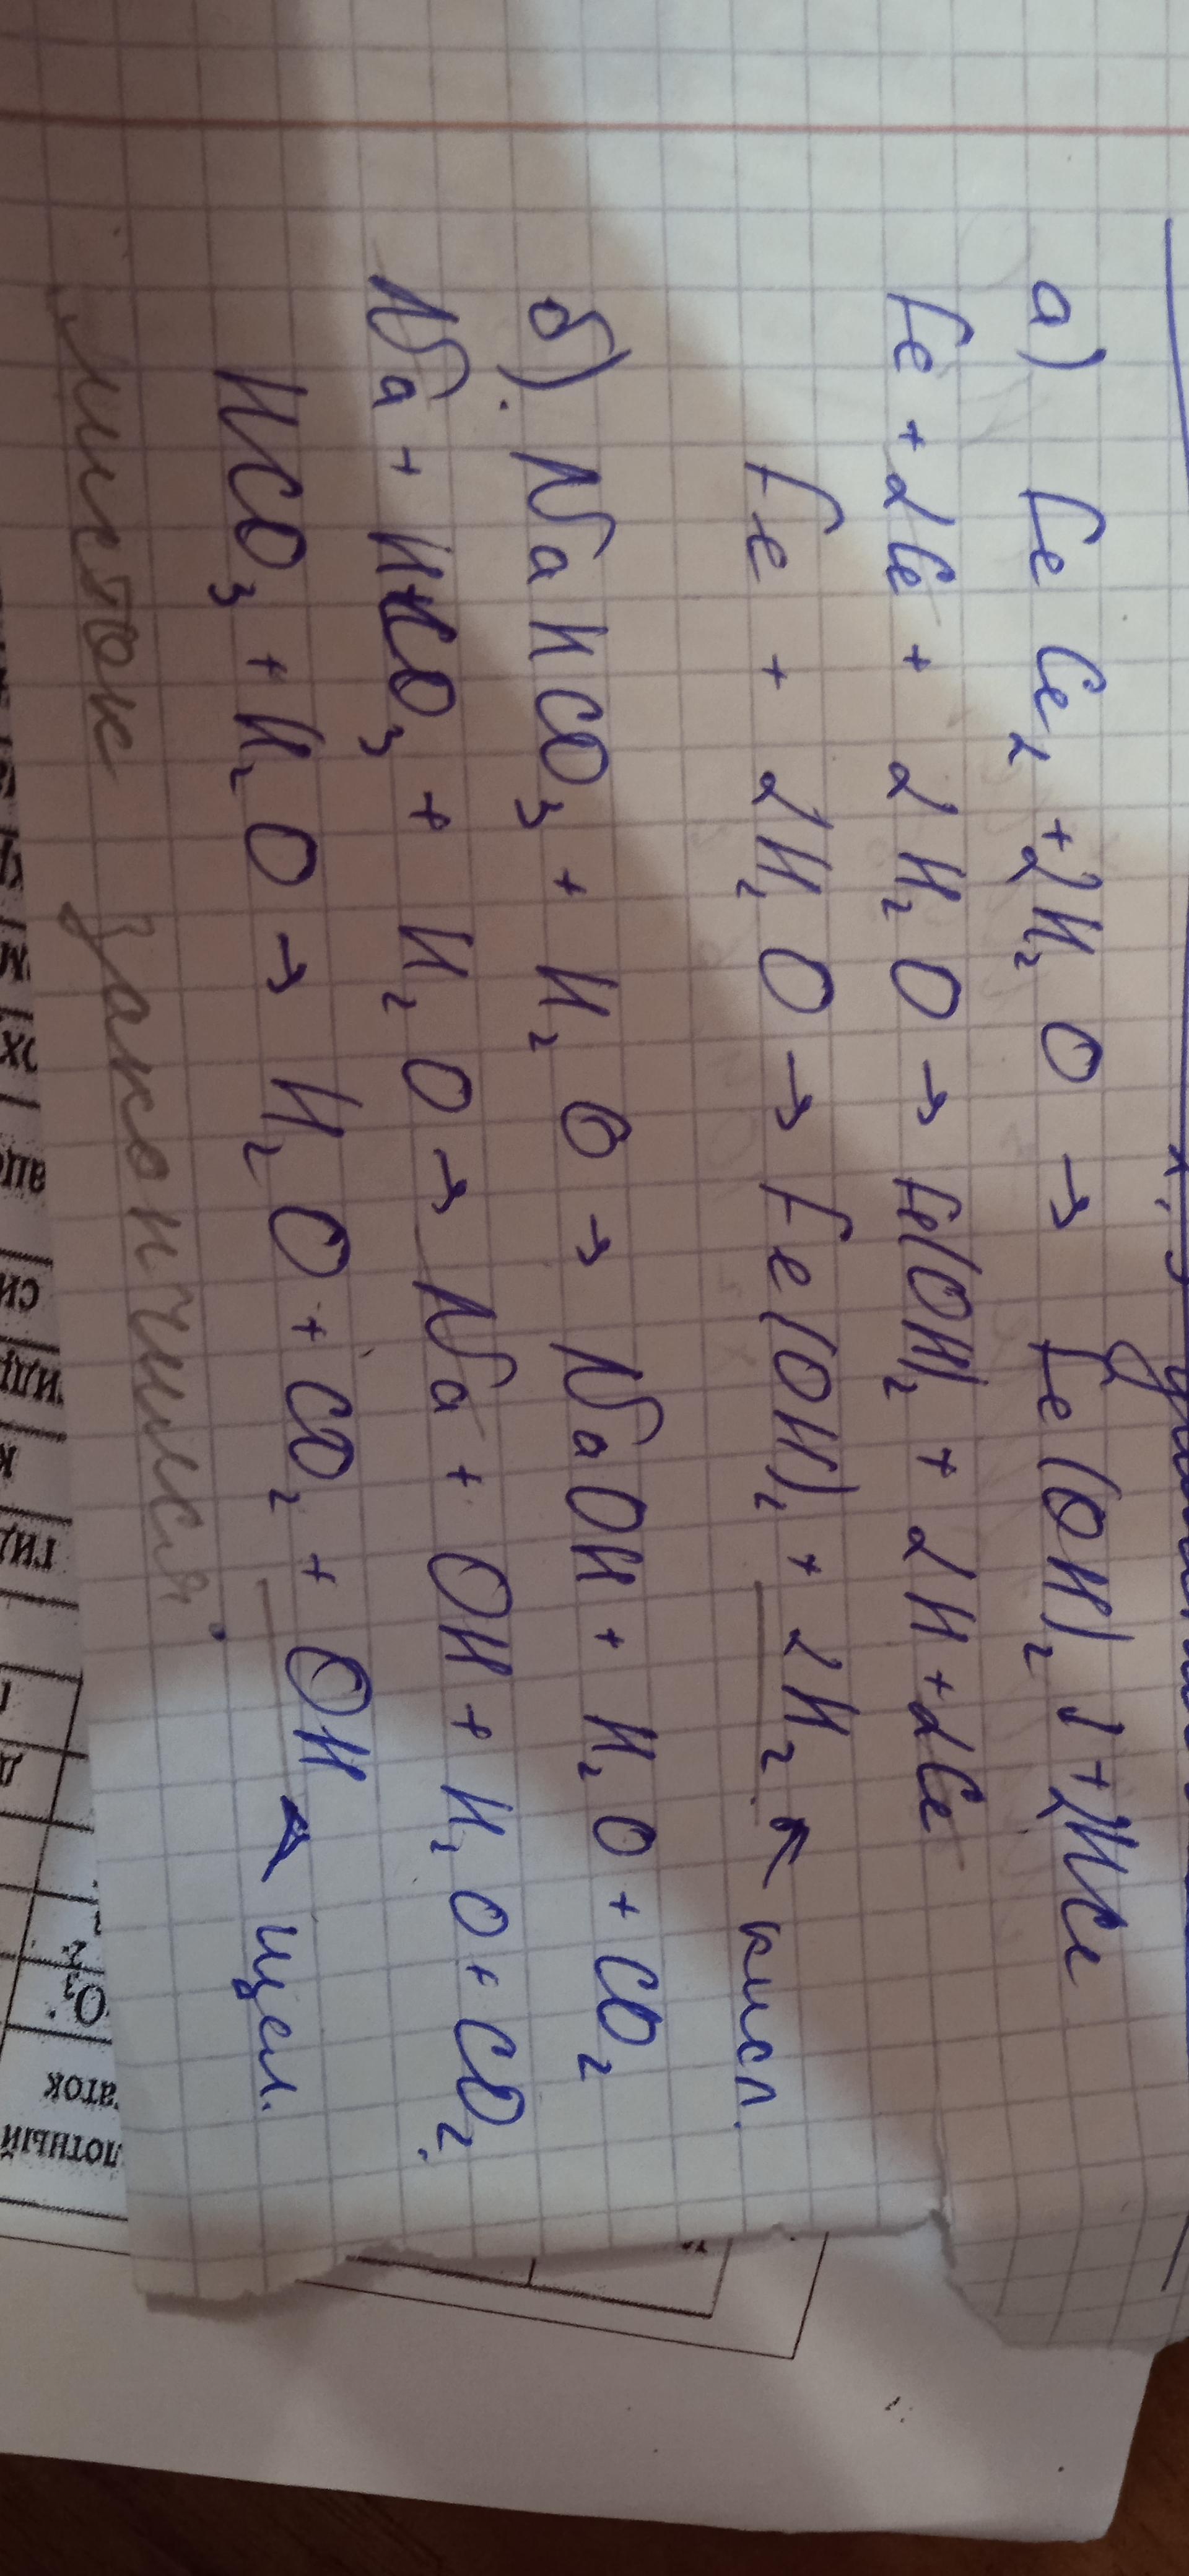 а) FeCl₂ + 2H₂O → Fe(OH)₂↓ + 2HCl
Fe + 2Cl + 2H₂O → Fe(OH)₂ + 2H + 2Cl
Fe + 2H₂O → Fe(OH)₂ + 2H₂ ← кисл.
б). NaHCO₃ + H₂O → NaOH + H₂O + CO₂
Na + HCO₃ + H₂O → Na + OH + H₂O + CO₂
HCO₃ + H₂O → H₂O + CO₂ + OH ← щел.
листок закончился.
O₃
таток
лотный